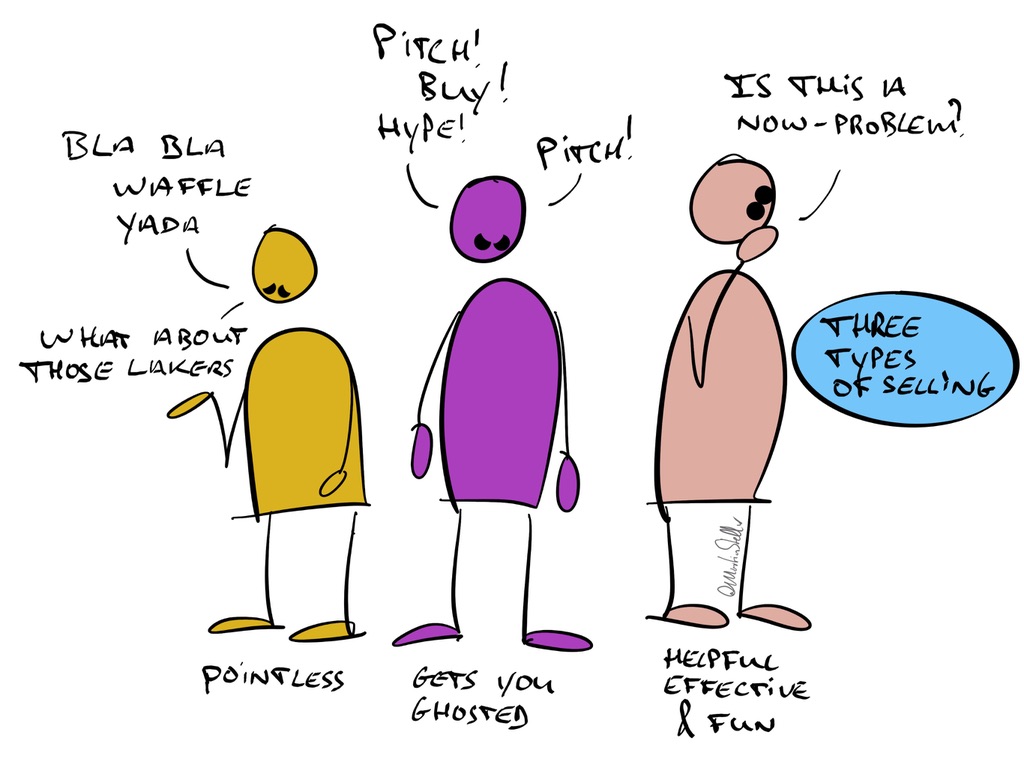 BLA BLA
WAFFLE
YADA
WHAT ABOUT
THOSE LAKERS
PITCH!
BUY!
HYPE!
PITCH!
IS THIS A
NOW-PROBLEM?
THREE
TYPES
OF SELLING
POINTLESS
GETS YOU
GHOSTED
HELPFUL
EFFECTIVE
& FUN